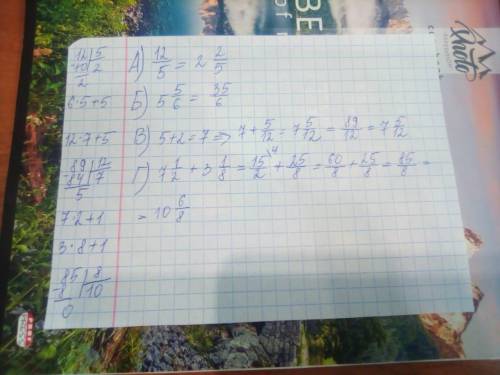 12 | 5
10 | 2
2
6·5+5
12·7+5
89 | 12
84 | 7
5
7·2+1
3·8+1
85 | 8
8 | 10
0
А) 12/5 = 2 2/5
Б) 5 5/6 = 35/6
В) 5+2=7 => 7+5/12=7 5/12=89/12=7 5/12
Г) 7 1/2 + 3 1/8 = 15/2 \4 + 25/8 = 60/8 + 25/8 = 85/8 =
= 10 6/8
BE
of
Photo